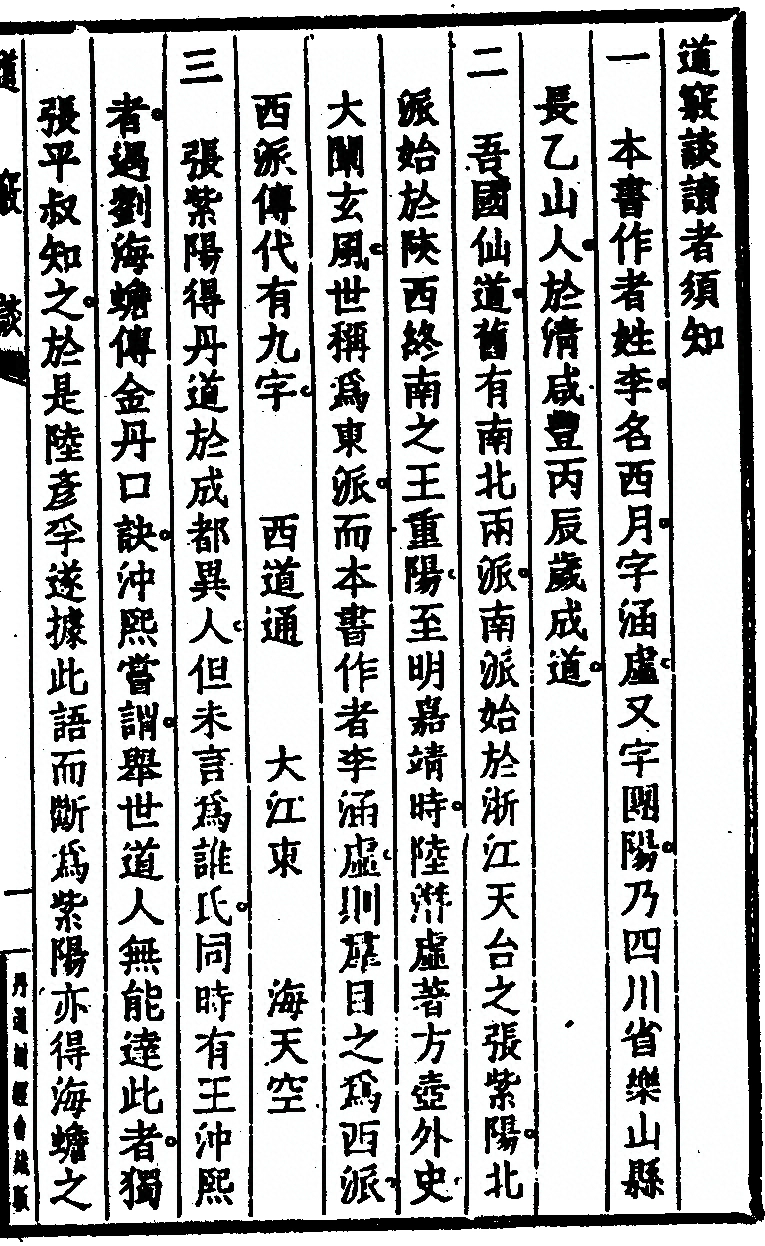 道竅談讀者須知
一　本書作者姓李名西月字涵虛又字團陽乃四川省樂山縣
長乙山人於清咸豐丙辰歲成道
二　吾國仙道舊有南北兩派南派始於浙江天台之張紫陽北
派始於陝西終南之王重陽至明嘉靖時陸潛虛著方壺外史
大闡玄風世稱爲東派而本書作者李涵虛則羣目之爲西派
西派傳代有九字　西道通　大江東　海天空
三　張紫陽得丹道於成都異人但未言爲誰氏同時有王沖熙
者遇劉海蟾傳金丹口訣沖熙嘗謂舉世道人無能達此者獨
張平叔知之於是陸彥孚遂據此語而斷爲紫陽亦得海蟾之
道竅談
一